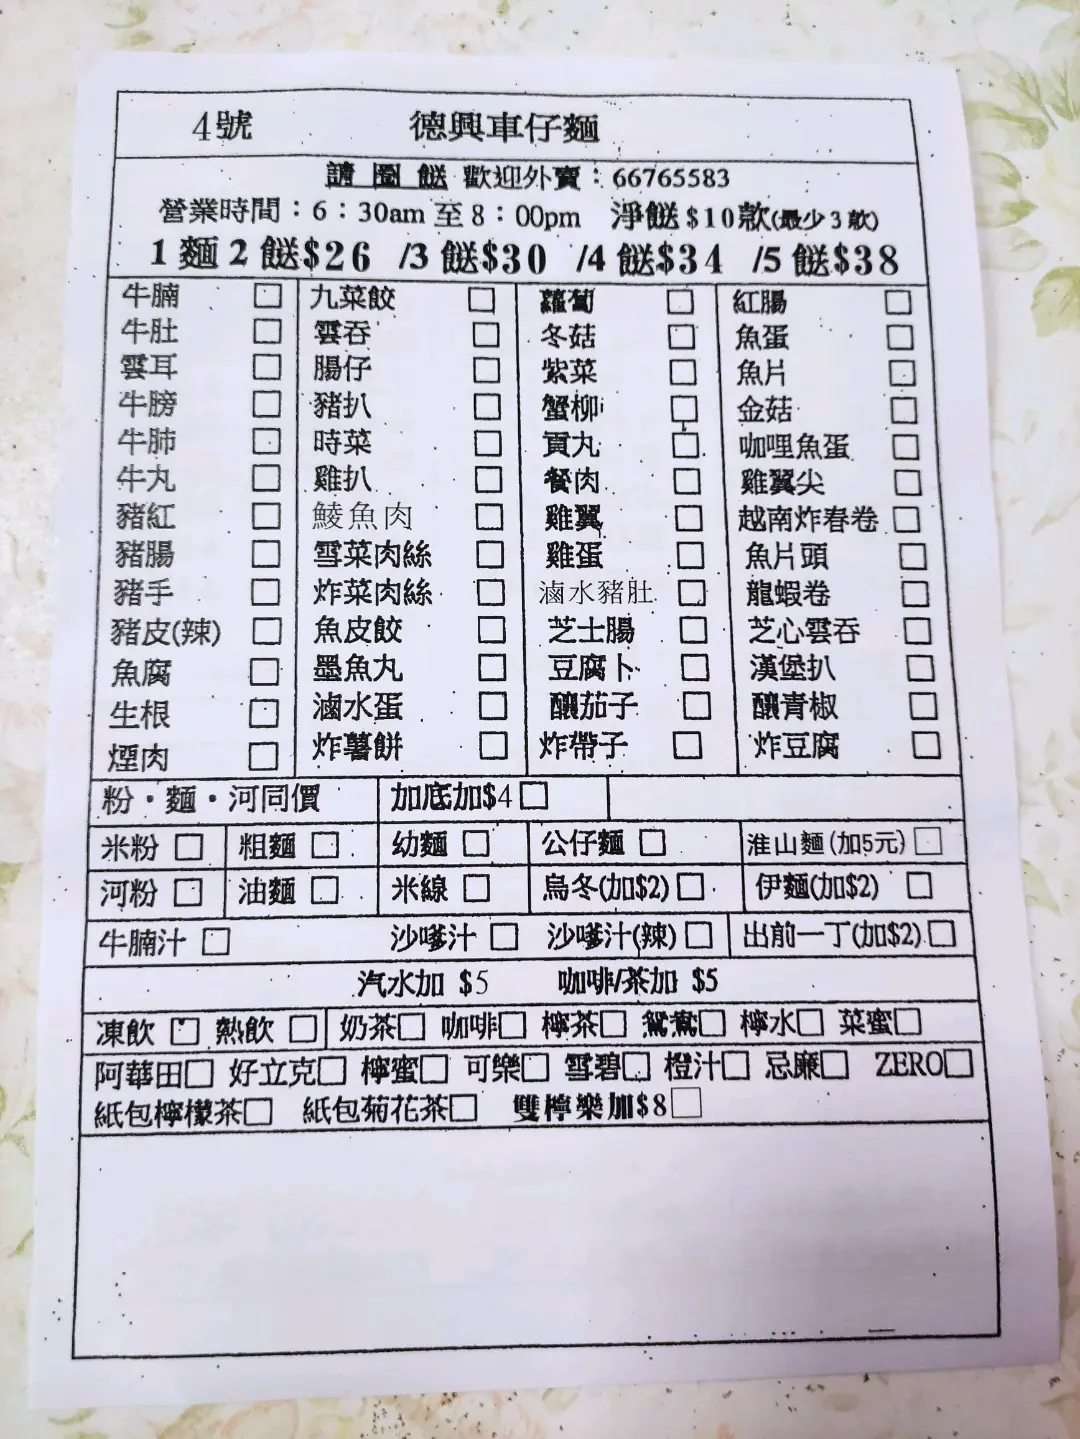 4號 德興車仔麵
請圈餸 歡迎外賣：66765583
營業時間：6：30am 至8：00pm 淨餸$10款(最少3款)
1麵2餸$26 /3餸$30 /4餸$34 /5餸$38
牛腩 □ 九菜餃 □ 蘿蔔 □ 紅腸 □
牛肚 □ 雲吞 □ 冬菇 □ 魚蛋 □
雲耳 □ 腸仔 □ 紫菜 □ 魚片 □
牛膀 □ 豬扒 □ 蟹柳 □ 金菇 □
牛肺 □ 時菜 □ 貢丸 □ 咖哩魚蛋 □
牛丸 □ 雞扒 □ 餐肉 □ 雞翼尖 □
豬紅 □ 鯪魚肉 □ 雞翼 □ 越南炸春卷 □
豬腸 □ 雪菜肉絲 □ 雞蛋 □ 魚片頭 □
豬手 □ 炸菜肉絲 □ 滷水豬肚 □ 龍蝦卷 □
豬皮(辣) □ 魚皮餃 □ 芝士腸 □ 芝心雲吞 □
魚腐 □ 墨魚丸 □ 豆腐卜 □ 漢堡扒 □
生根 □ 滷水蛋 □ 釀茄子 □ 釀青椒 □
煙肉 □ 炸薯餅 □ 炸帶子 □ 炸豆腐 □
粉・麵・河同價 加底加$4 □
米粉 □ 粗麵 □ 幼麵 □ 公仔麵 □ 淮山麵(加5元) □
河粉 □ 油麵 □ 米線 □ 烏冬(加$2) □ 伊麵(加$2) □
牛腩汁 □ 沙嗲汁 □ 沙嗲汁(辣) □ 出前一丁(加$2) □
汽水加 $5 咖啡/茶加 $5
凍飲 □ 熱飲 □ 奶茶□ 咖啡□ 檸茶□ 鴛鴦□ 檸水□ 菜蜜□
阿華田□ 好立克□ 檸蜜□ 可樂□ 雪碧□ 橙汁□ 忌廉□ ZERO□
紙包檸檬茶□ 紙包菊花茶□ 雙檸樂加$8□